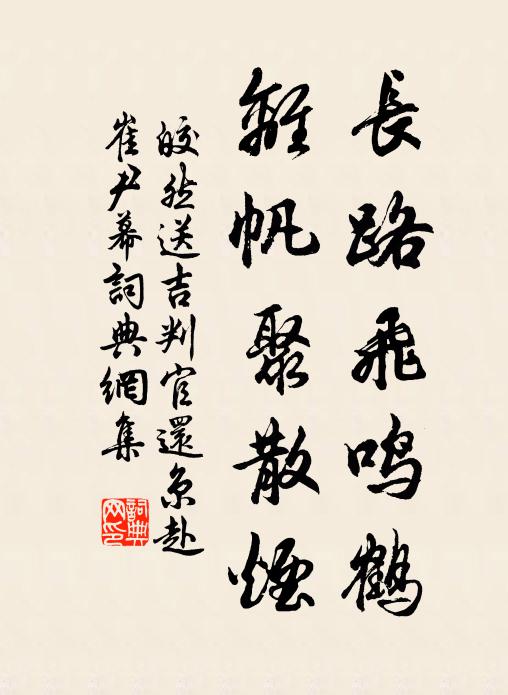 長路飛鳴鶴
離帆聚散煙
皎然送吉判官還京赴
崔尹幕詞典網集
詞典网印